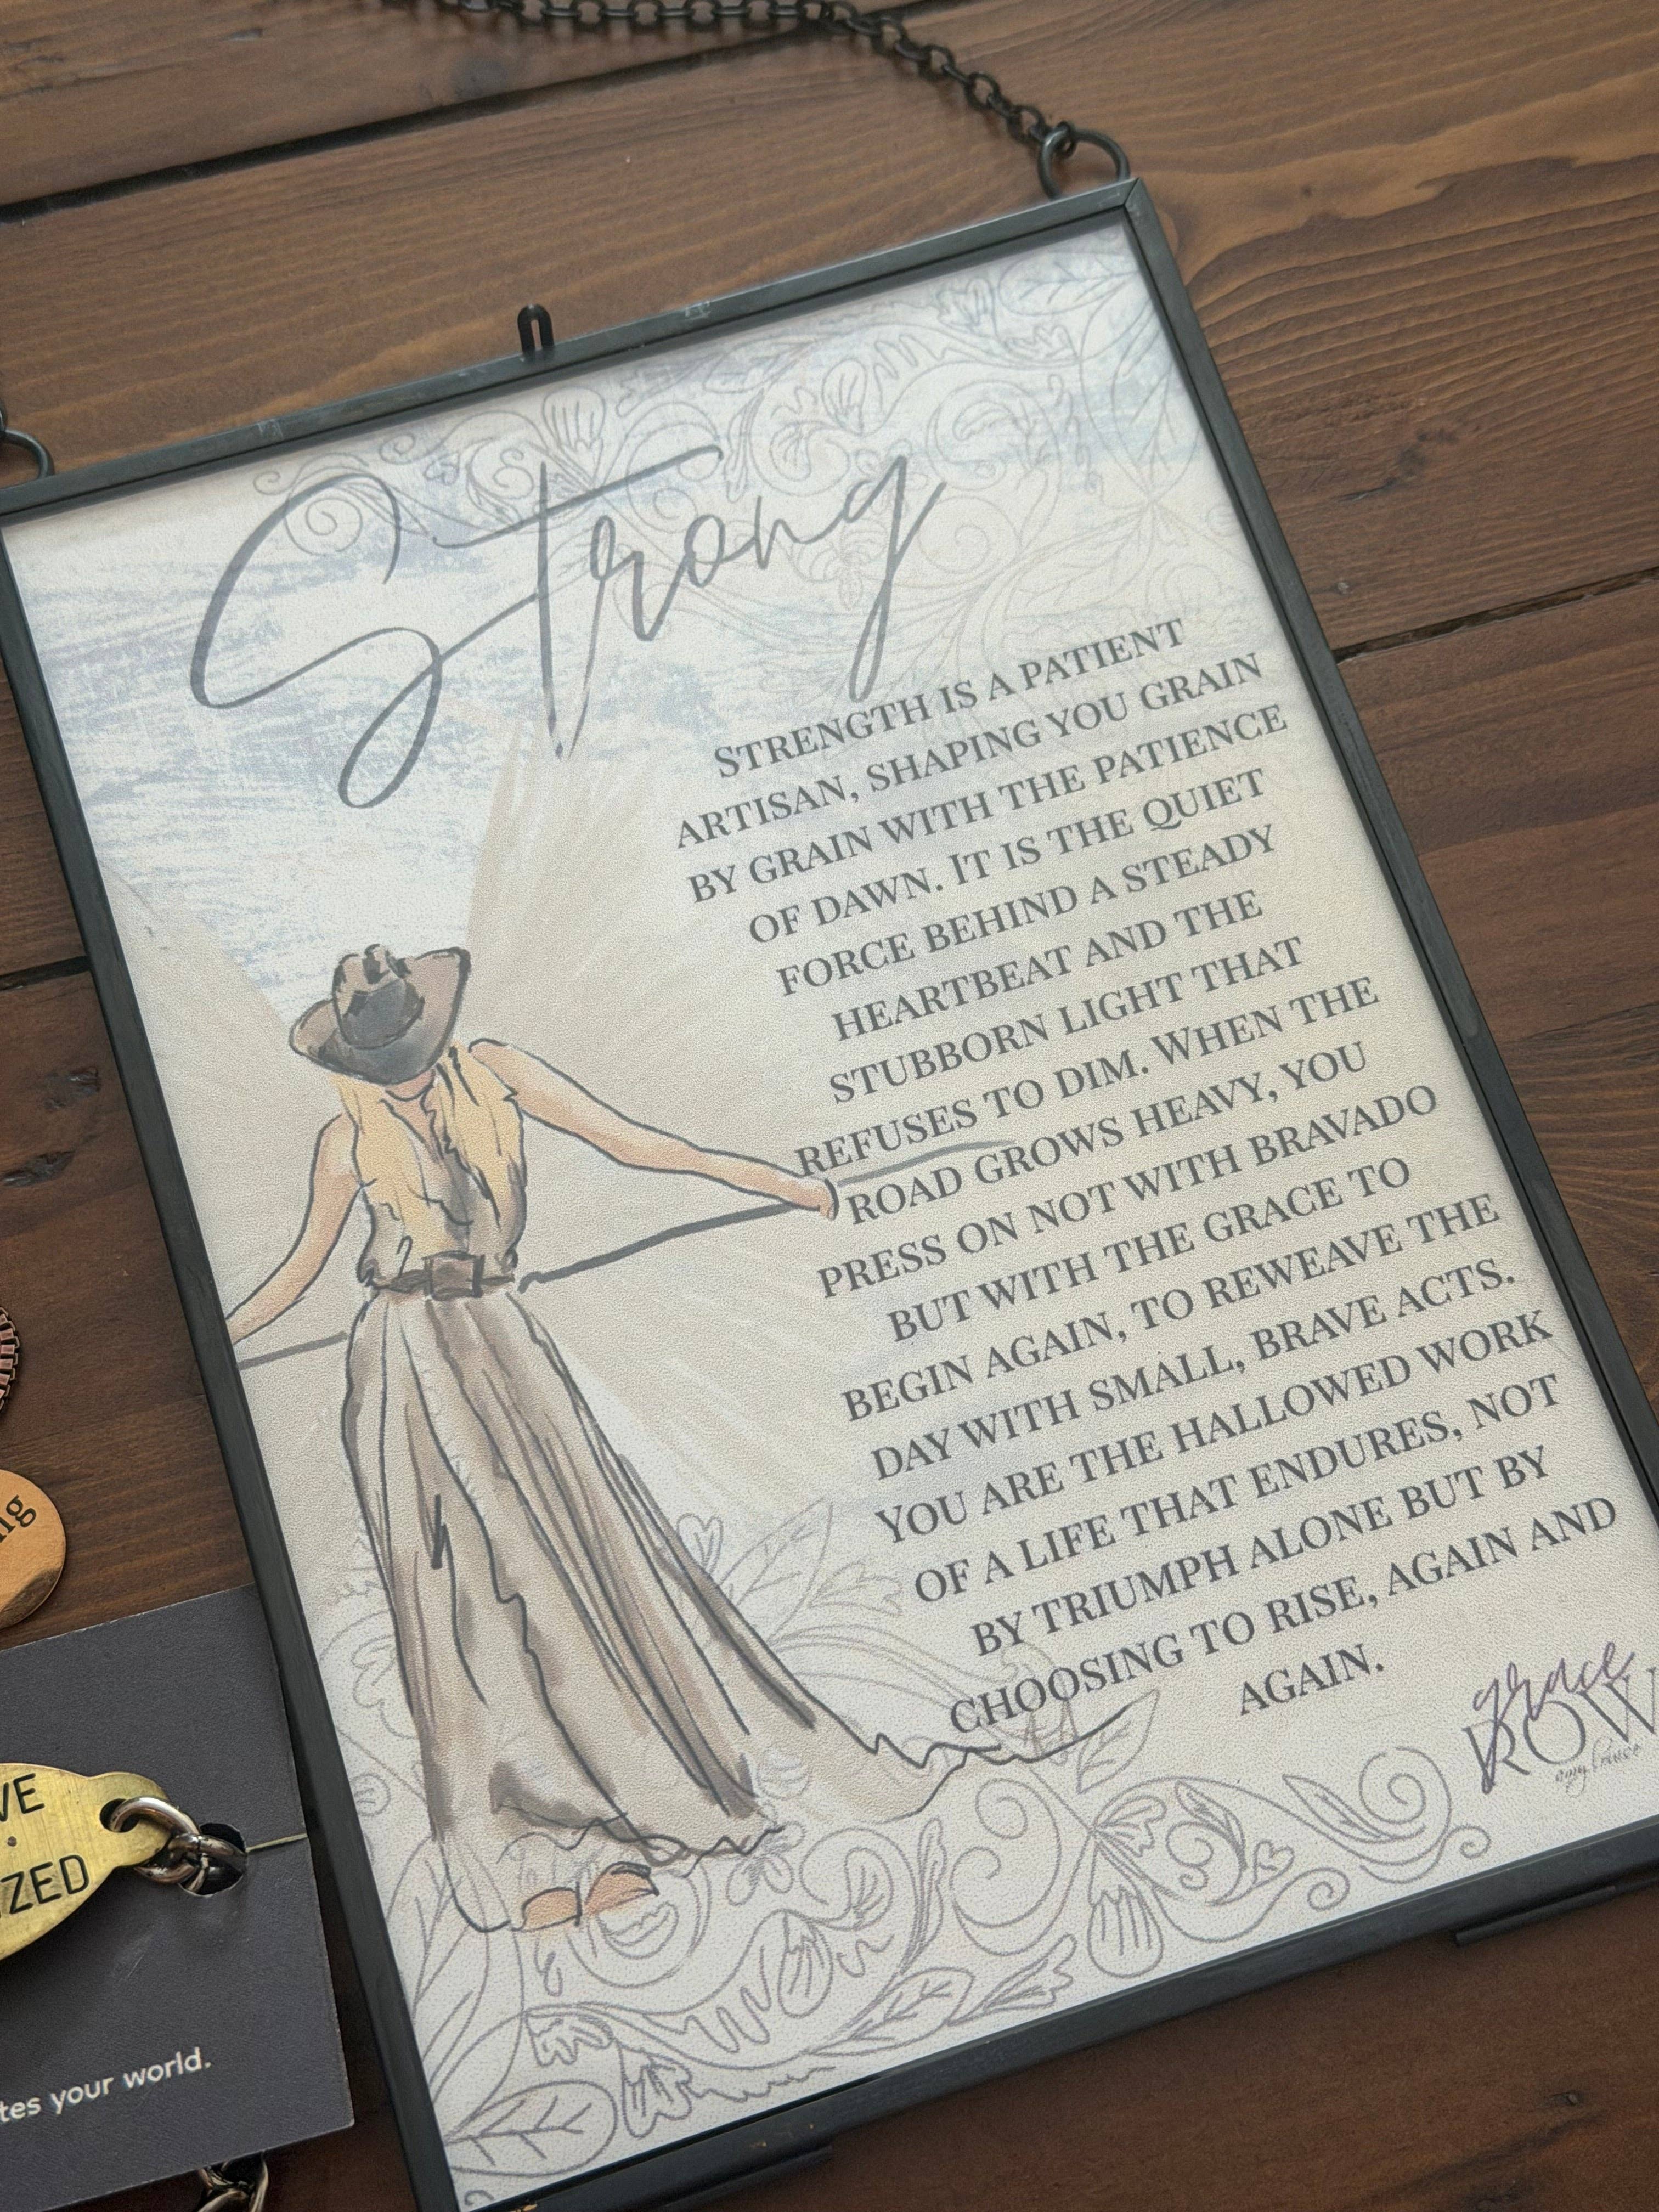 Strong
STRENGTH IS A PATIENT
ARTISAN, SHAPING YOU GRAIN
BY GRAIN WITH THE PATIENCE
OF DAWN. IT IS THE QUIET
FORCE BEHIND A STEADY
HEARTBEAT AND THE
STUBBORN LIGHT THAT
REFUSES TO DIM. WHEN THE
ROAD GROWS HEAVY, YOU
PRESS ON NOT WITH BRAVADO
BUT WITH THE GRACE TO
BEGIN AGAIN, TO REWEAVE THE
DAY WITH SMALL, BRAVE ACTS.
YOU ARE THE HALLOWED WORK
OF A LIFE THAT ENDURES, NOT
BY TRIUMPH ALONE BUT BY
CHOOSING TO RISE, AGAIN AND
AGAIN.
grace
ROW
your world.